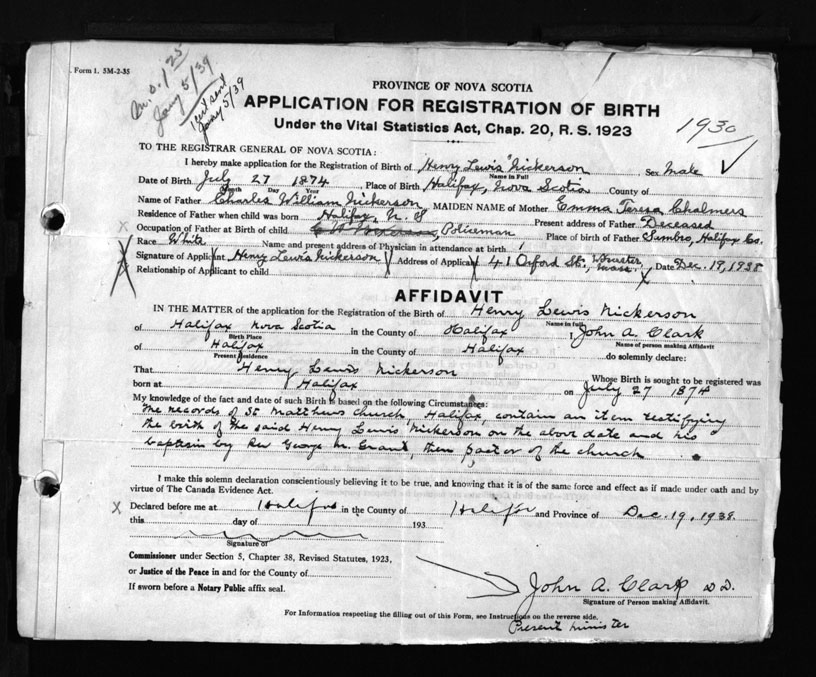 Form 1. 5M-2-35
M.O. 1.25
Jany 5/39
1 cert sent
Jany 5/39
PROVINCE OF NOVA SCOTIA
APPLICATION FOR REGISTRATION OF BIRTH
Under the Vital Statistics Act, Chap. 20, R. S. 1923
1930
TO THE REGISTRAR GENERAL OF NOVA SCOTIA:
I hereby make application for the Registration of Birth of Henry Lewis Nickerson Sex Male
Name in Full
Date of Birth July 27 1874, Place of Birth Halifax, Nova Scotia County of
Month Day Year
Name of Father Charles William Nickerson MAIDEN NAME of Mother Emma Teresa Chalmers
Residence of Father when child was born Halifax N. S Present address of Father Deceased
Occupation of Father at Birth of child Policeman Place of birth of Father Sambro, Halifax Co.
Race White Name and present address of Physician in attendance at birth
Signature of Applicant Henry Lewis Nickerson Address of Applicant 41 Oxford St., Worcester, Mass. Date Dec. 19, 1938
Relationship of Applicant to child
AFFIDAVIT
IN THE MATTER of the application for the Registration of the Birth of Henry Lewis Nickerson
Name in full
of Halifax Nova Scotia in the County of Halifax I, John A. Clark
Birth Place Name of person making Affidavit
of Halifax in the County of Halifax do solemnly declare:
Present Residence
That Henry Lewis Nickerson Whose Birth is sought to be registered was
born at Halifax on July 27 1874
My knowledge of the fact and date of such Birth is based on the following Circumstances:
The records of St Matthews church, Halifax, contain an item testifying
the birth of the said Henry Lewis Nickerson on the above date and his
baptism by Rev George M. Grant, then pastor of the church
I make this solemn declaration conscientiously believing it to be true, and knowing that it is of the same force and effect as if made under oath and by
virtue of The Canada Evidence Act.
X Declared before me at Halifax in the County of Halifax and Province of Dec. 19, 1938.
this day of 193
Signature of
Commissioner under Section 5, Chapter 38, Revised Statutes, 1923,
or Justice of the Peace in and for the County of
If sworn before a Notary Public affix seal.
John A. Clark D D.
Signature of Person making Affidavit.
For Information respecting the filling out of this Form, see Instructions on the reverse side.
Present minister